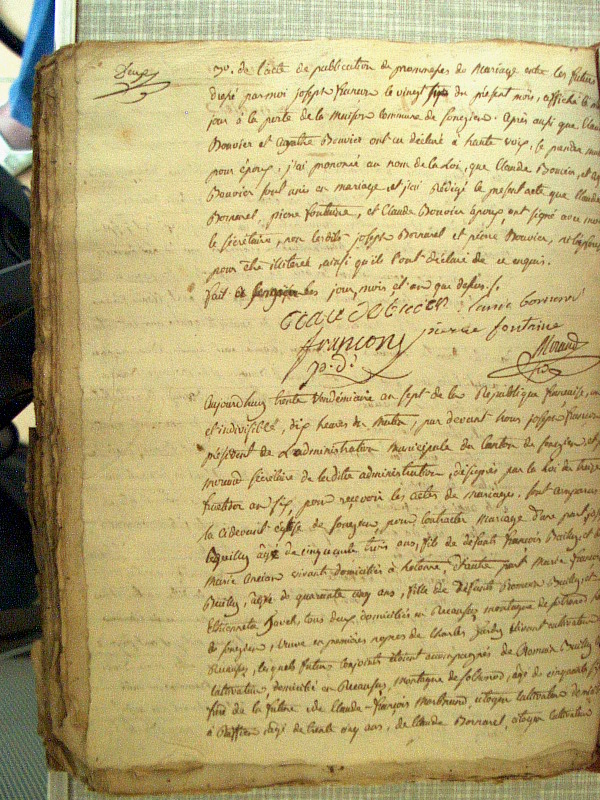 Deux
3o. de l'acte de publication de promesses de mariage entre les futurs
dressé par moi joseph françon le vingt sept du présent mois, affiché le même
jour à la porte de la maison commune de songieu. Après aussi que Claude
Bouvier et agathe Bouvier ont eu déclaré à haute voix, se prendre mutuellement
pour époux; j'ai prononcé au nom de la Loi, que Claude Bouvier, et agathe
Bouvier sont unis en mariage et j'ai rédigé le présent acte que Claude
Bonnarel, pierre fontaine, et Claude Bouvier époux ont signé avec moi
le sécrétaire, non lesdits joseph Bonnarel et pierre Bouvier,
pour être illiteré, ainsi qu'ils l'ont déclaré de ce enquis.
fait les jour, mois et an que dessus./.
pierre fontaine
françon
p.d.t
Aujourd'huy trente Vendémiaire an sept de la République française, une
et indivisible, dix heures du matin, par devant nous joseph françon
président de L'administration municipale du canton de songieu et
sécrétaire de laditte administration, désignés par la Loi du treize
fructidor an six, pour recevoir les actes de mariages, sont comparus
la cidevant église de songieu, pour contracter mariage d'une part
agé de cinquante trois ans, fils de défunts françois Bailly et
marie ancian vivant domiciliés à hotonne, d'autre part marie françoise
Bailly, agée de quarante cinq ans, fille de défunts Romain Bailly, et
Etiennette Javel, tous deux domiciliés en montagne de
de songieu, veuve en premières nopces de Charles vivant cultivateur
lesquels futurs conjoints étoient accompagnés de Romain Bailly
cultivateur, domicilié en montagne de agé de cinquante
de la future, de Claude-françois citoyen cultivateur
à Ruffieu agé de trente cinq ans, de Claude Bonnarel, citoyen cultivateur